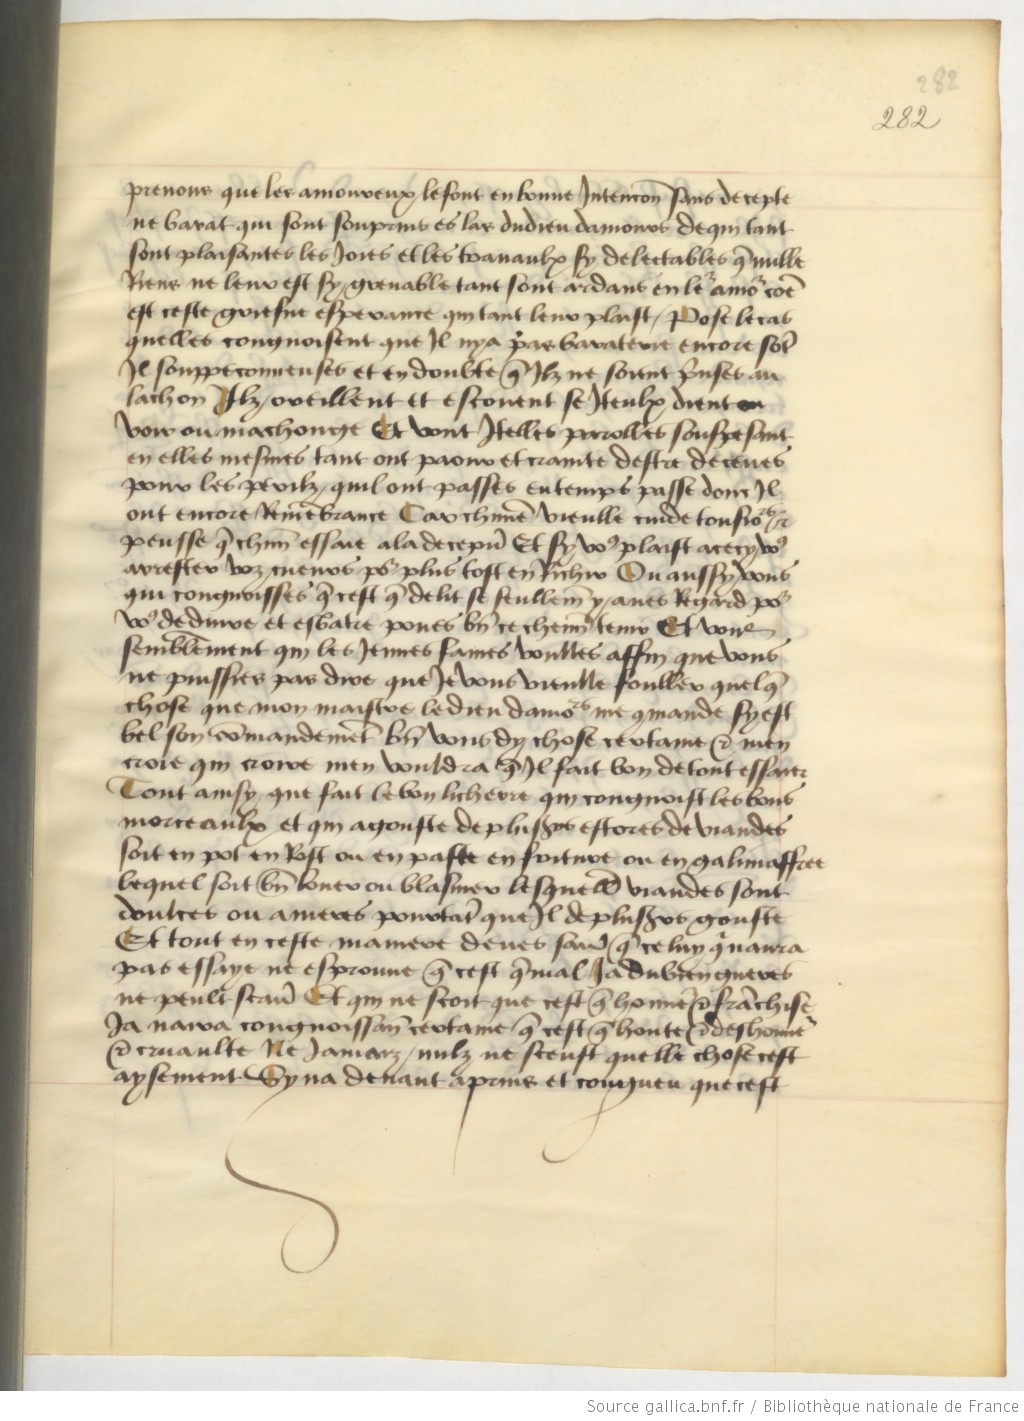 282
282
prenons que les amoureux le font en bonne Intencon sans decepte
ne barat qui sont souprins es las du dieu damours de qui tant
sont plaisantes les Joies et les travaulx sy delectables q̄ nulle
Riens ne leur est sy grevable tant sont ardans en le amo coe
est ceste griefue esperance qui tant leur plaist Pose le cas
quelles congnoissent que Il nya pas baraterie encore sōt
Il souppeconneuses et en doubte q̄ Ilz ne soient p̄nses au
lachon Ilz oreillent et escoutent se Iceulx dient ou
voir ou machonge Et vont Itelles parolles souspesant
en elles mesmes tant ont paour et crainte destre deceues
pour les perilz quil ont passes en temps passe donc Il
ont encore Remēbrance Car chūne vieulle cuide tousio
peusse q̄ chūn essaie a la decepcō Et sy vo plaist a cecy vo
arrester voz cueurs po plus tost enRichir Ou aussy vous
qui congnoisses q̄ cest q̄ delit se seullem̄ y aves Regard po
vo deduire et esbatre poves bn̄ ce chemī tenir Et
semblement qui les Jennes fames voulles affin que vous
ne puissies pas dire que Je vous vieulle souller quelq̄
chose que mon maistre le dieu damo me qmande sy est
bel son comandemēt bn̄ vous dy chose certaine et men
croie qui croire men vouldra q̄ Il fait bon de tout essaier
Tout ainsy que fait le bon licherre qui congnoist les bons
morceaulx et qui a gouste de plusrs estores de viandes
soit en pot en Rost ou en paste en friture ou en galimaffree
lequel soit bn̄ louer ou blasmer lesquell viandes sont
doulces ou ameres pourtāt que Il de plusrs gouste
Et tout en ceste maniere deves savr q̄ celuy q̄ naura
pas essaye ne esprouve q̄ cest q̄ mal Ja du bien gueres
ne peult scavr Et qui ne scoit que cest q̄ honne et frāchise
Ja naura congnoissanc certaine q̄ cest q̄ honte et deshonne
et cruaulte Ne Jamaiz nulz ne sceust quelle chose cest
aysement Sy na devant aprins et congneu que cest
Source gallica.bnf.fr / Bibliothèque nationale de France